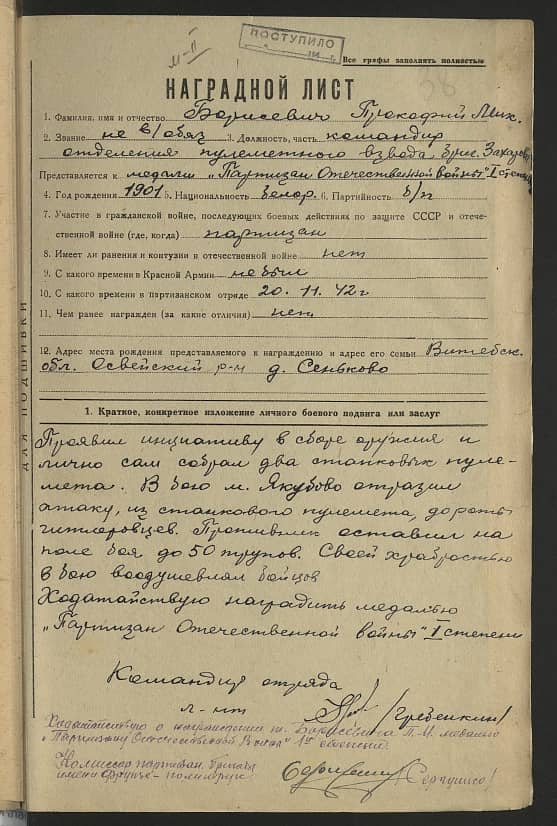 м-II
ПОСТУПИЛО
38
Все графы заполнять полностью
НАГРАДНОЙ ЛИСТ
1. Фамилия, имя и отчество Борисевич Прокофий Мих.
2. Звание не в/обяз 3. Должность, часть командир
отделения пулеметного взвода, бриг. Захарова
Представляется к медали „Партизан Отечественной войны" I степени
4. Год рождения 1901 5. Национальность белор. 6. Партийность б/п
7. Участие в гражданской войне, последующих боевых действиях по защите СССР и отече-
ственной войне (где, когда) партизан
8. Имеет ли ранения и контузии в отечественной войне нет
9. С какого времени в Красной Армии не был
10. С какого времени в партизанском отряде 20.11.42 г
11. Чем ранее награжден (за какие отличия) нет
12. Адрес места рождения представляемого к награждению и адрес его семьи Витебск.
обл. Освейский р-н д. Сеньково
ДЛЯ ПОДШИВКИ
1. Краткое, конкретное изложение личного боевого подвига или заслуг
Проявил инициативу в сборе оружия и
лично сам собрал два станковых пуле-
мета. В бою м. Якубово отразил
атаку, из станкового пулемета, до роты
гитлеровцев. Противник оставил на
поле боя до 50 трупов. Своей храбростью
в бою воодушевлял бойцов
Ходатайствую наградить медалью
„Партизан Отечественной войны" I степени
Командир отряда
л-нт /Гребенкин/
Ходатайствую о награждении т. Борисевича П.М. медалью
„Партизану Отечественной Войны" 1й степени.
Комиссар партизан. бригады
имени Фрунзе - политрук /Сергушко/